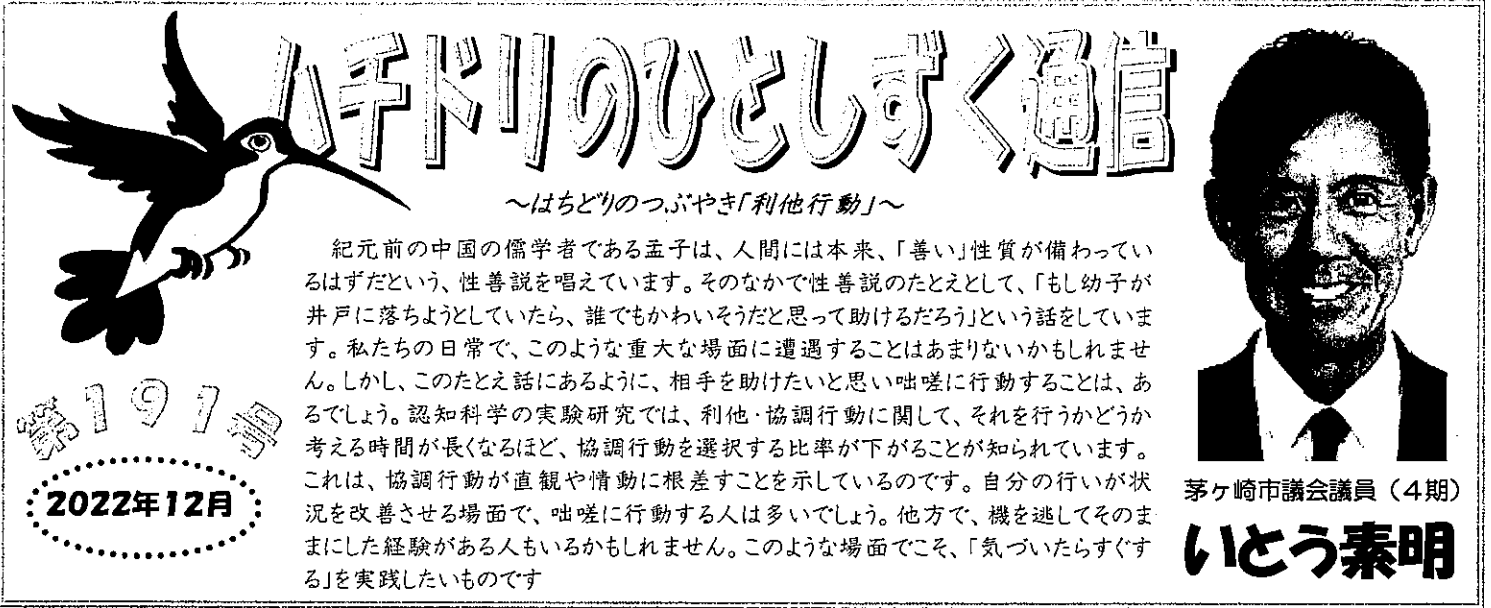 ハチドリのひとしずく通信
～はちどりのつぶやき「利他行動」～
紀元前の中国の儒学者である孟子は、人間には本来、「善い」性質が備わってい
るはずだという、性善説を唱えています。そのなかで性善説のたとえとして、「もし幼子が
井戸に落ちようとしていたら、誰でもかわいそうだと思って助けるだろう」という話をしていま
す。私たちの日常で、このような重大な場面に遭遇することはあまりないかもしれませ
ん。しかし、このたとえ話にあるように、相手を助けたいと思い咄嗟に行動することは、あ
るでしょう。認知科学の実験研究では、利他・協調行動に関して、それを行うかどうか
考える時間が長くなるほど、協調行動を選択する比率が下がることが知られています。
これは、協調行動が直観や情動に根差すことを示しているのです。自分の行いが状
況を改善させる場面で、咄嗟に行動する人は多いでしょう。他方で、機を逃してそのま
まにした経験がある人もいるかもしれません。このような場面でこそ、「気づいたらすぐす
る」を実践したいものです
第191号
2022年12月
茅ヶ崎市議会議員（4期）
いとう素明